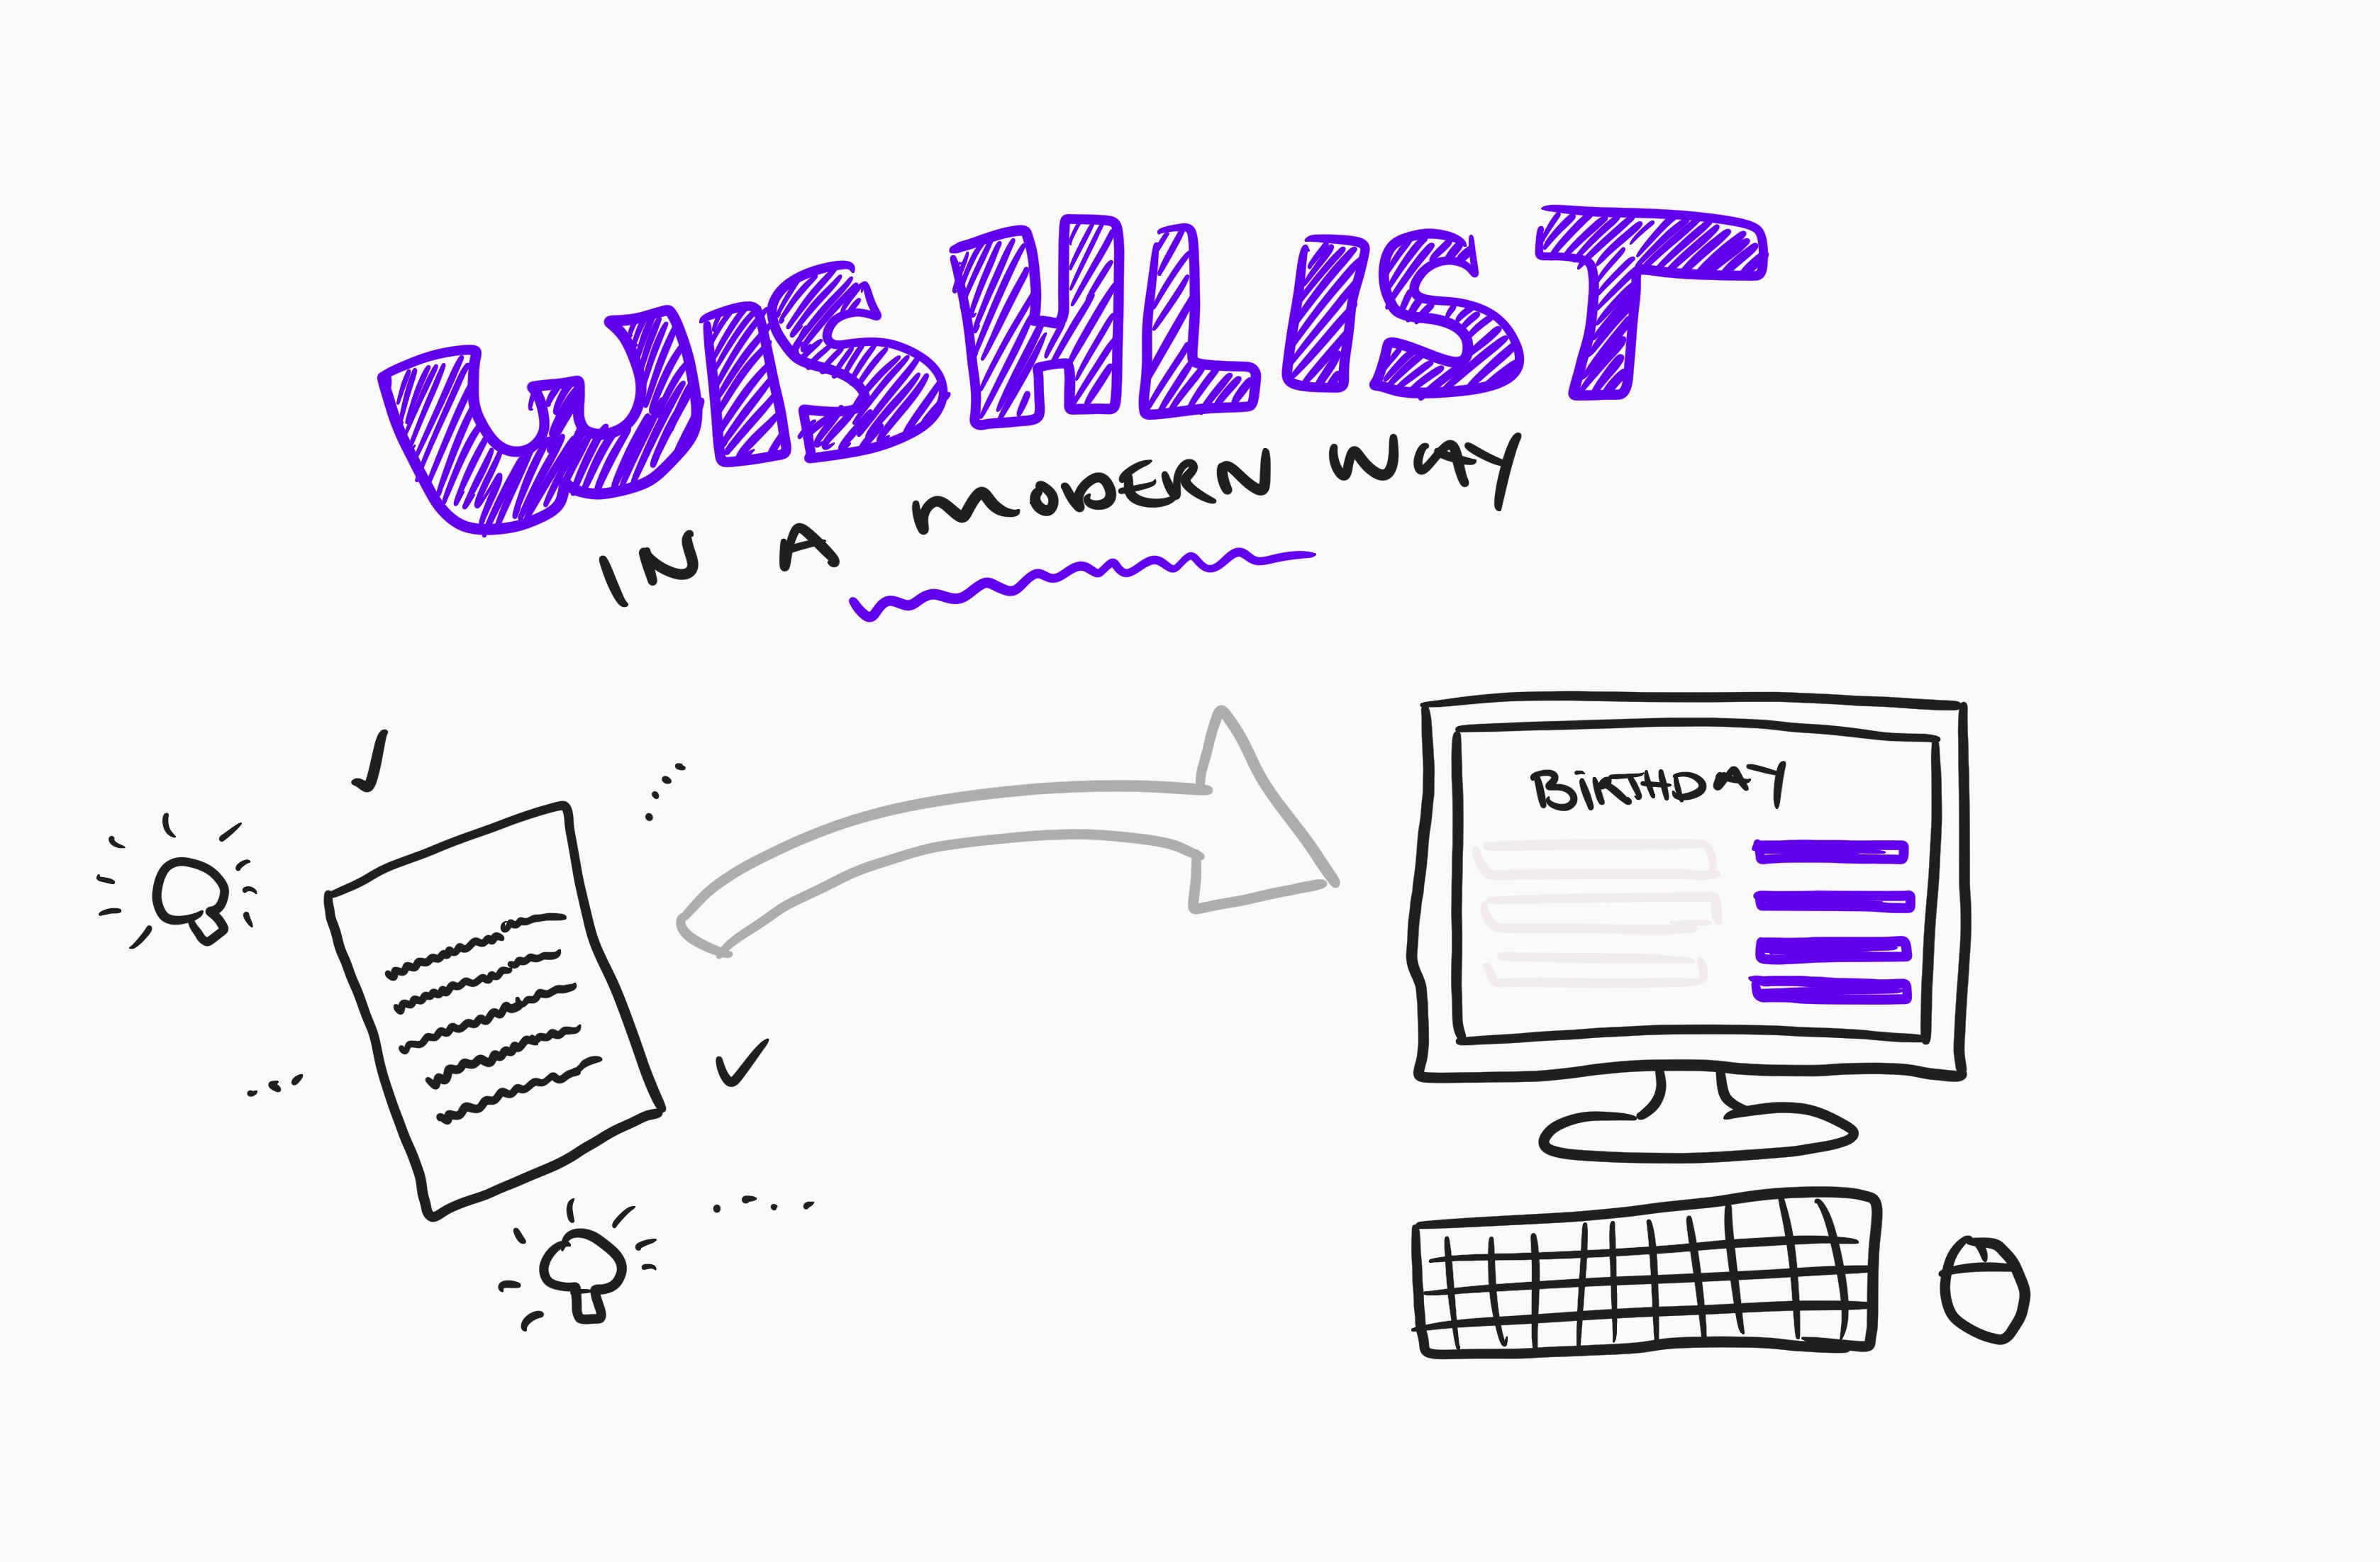 WISHLIST
IN A MODERN WAY
BIRTHDAY